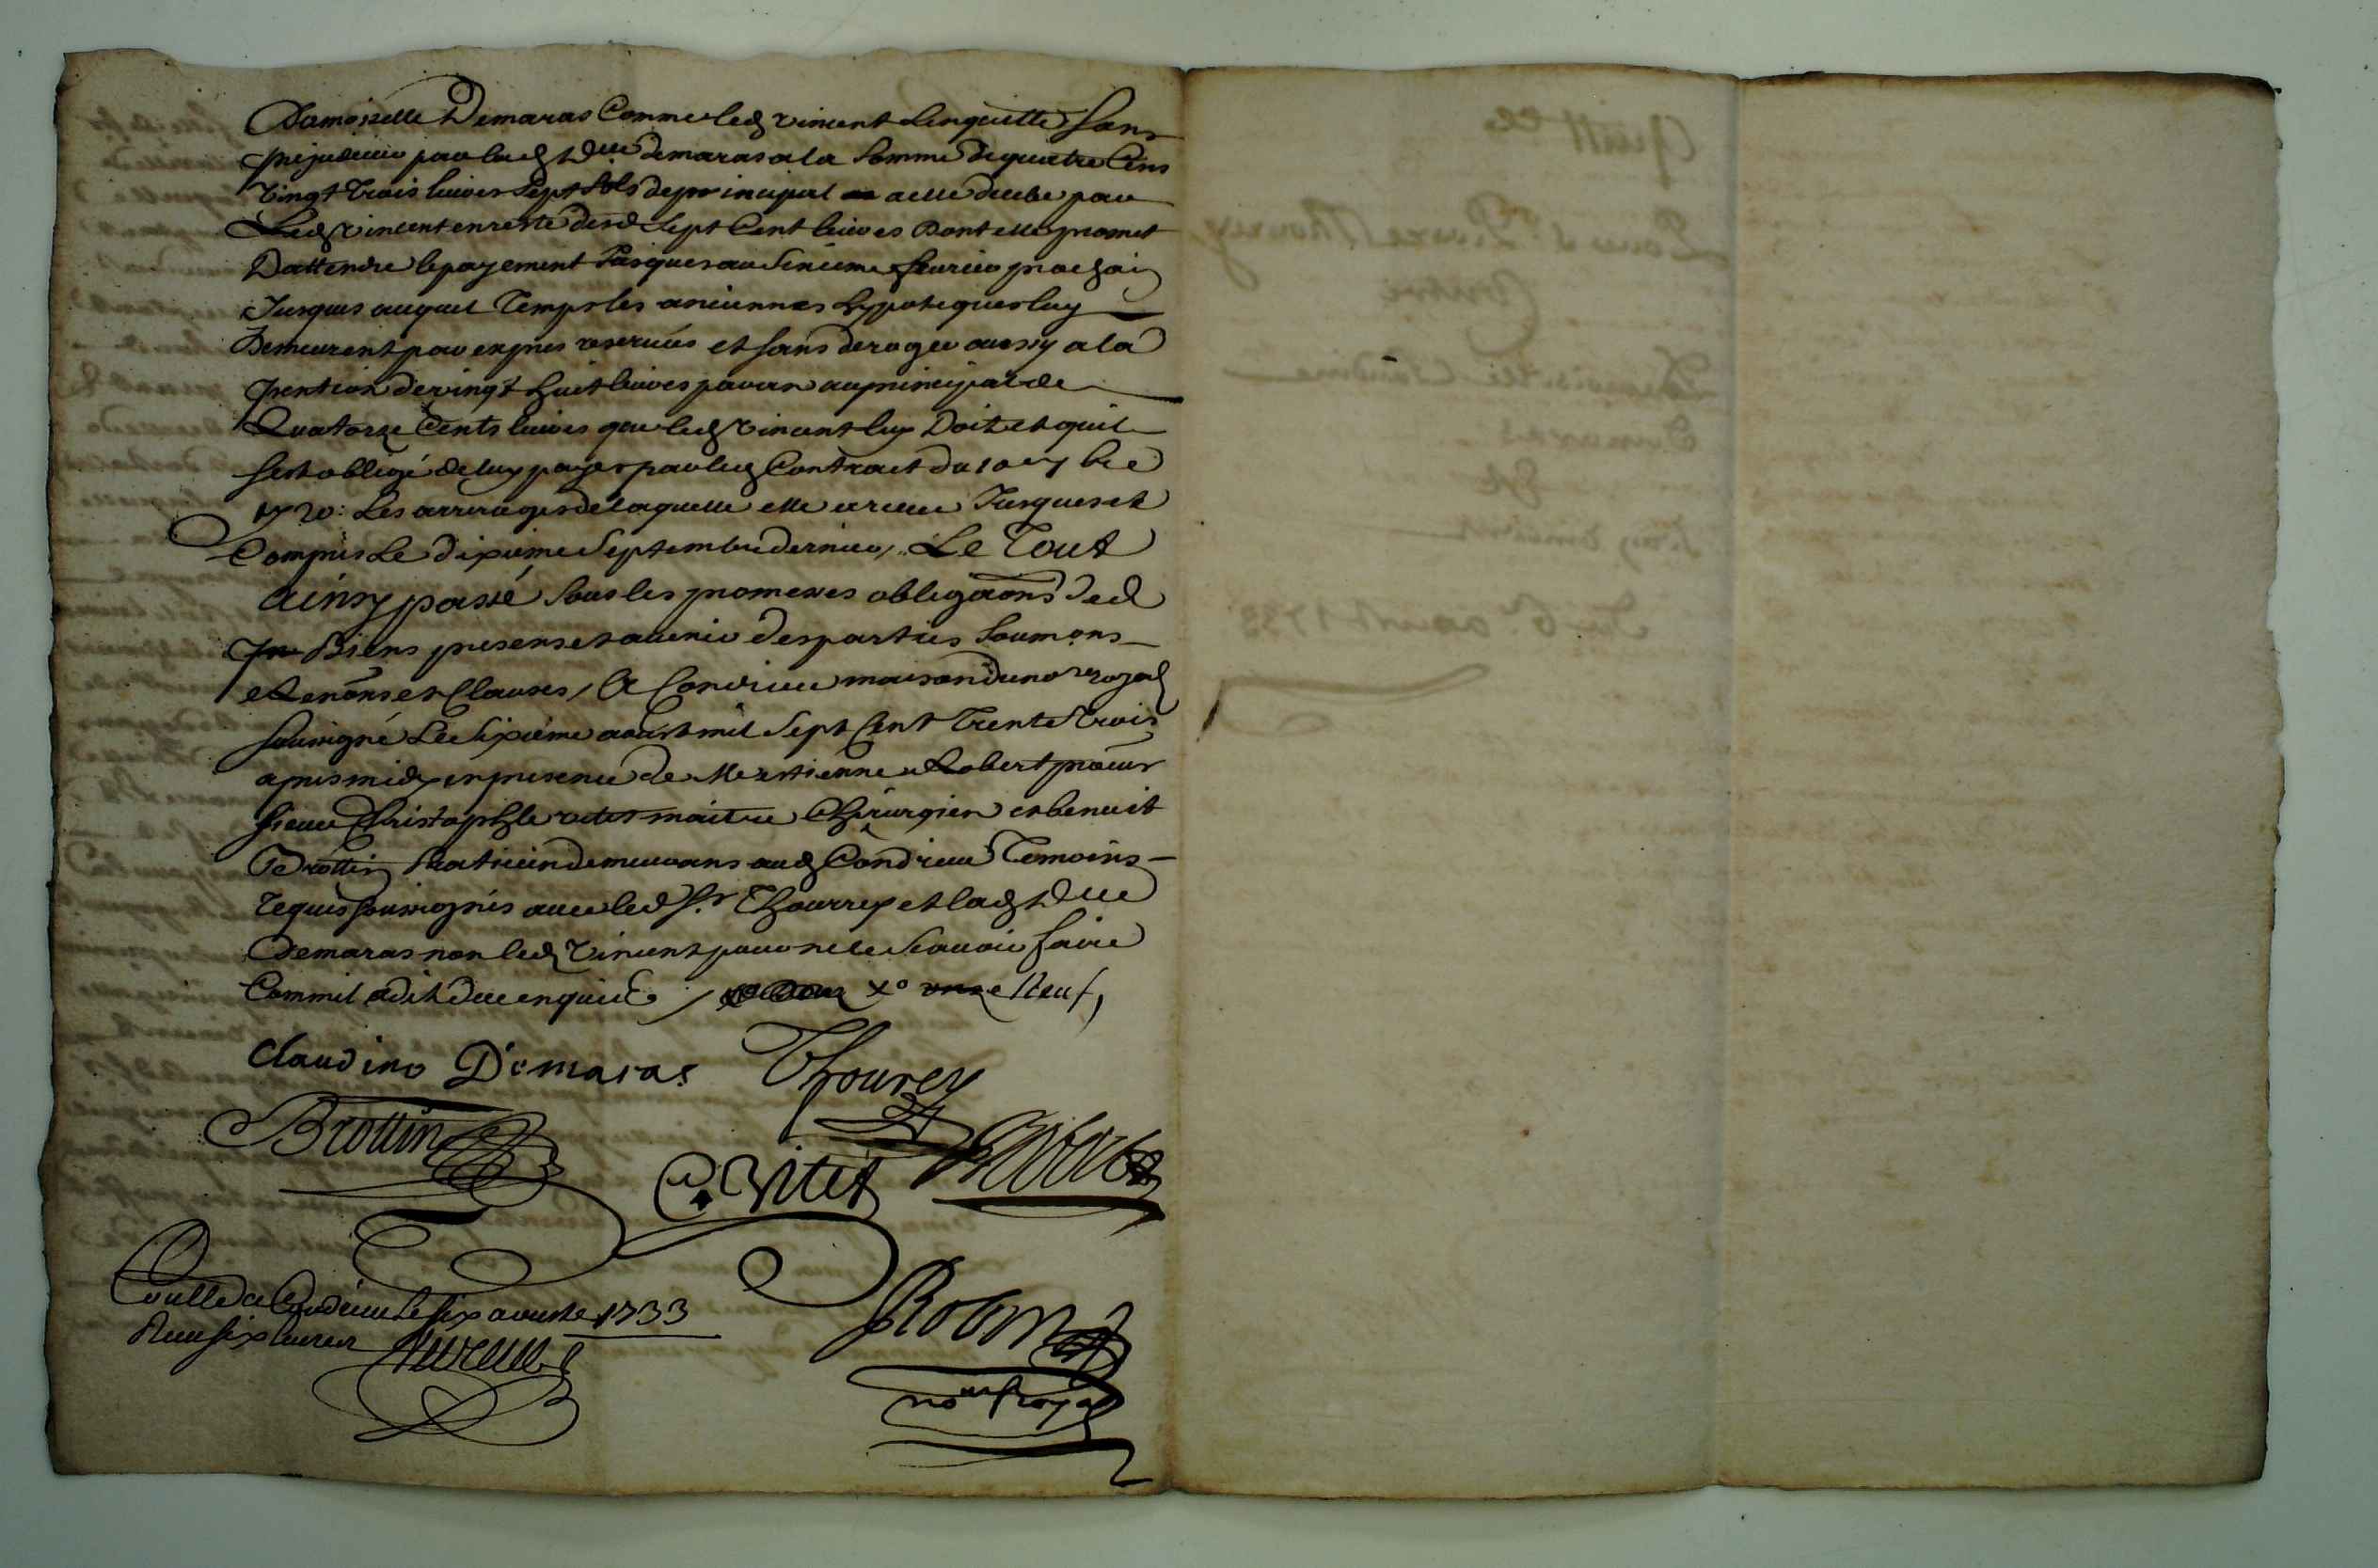 Damoiselle Demaras Comme led vincent Lenquitte sans
prejudice par lad dlle demaras a la Somme de quatre Cens
vingt trois livres Sept sols de principal a elle deube par
Led vincent en reste desd Sept Cent livres Dont elle promet
D'attendre le payement Jusques au Sixieme fevrier prochain
Jusques auquel Temps les anciennes hypoteques luy
Demeurent par exprès reservées et sans deroger aussy a la
pention de vingt huit livres par an au principal de
Quatorze Cents livres que led vincent luy Doit et quil
sest obligé de luy payer par led Contract du 10e 7bre
1720: Les arrerages de laquelle elle a receu Jusques et
Compris Le dixieme Septembre dernier, Le Tout
ainsy passé sous les promesses obligaons de
Biens presens et avenir des parties soumons
et Renons et Clauses, A Condrieu maison du nore royal
soussigné Le Sixieme aoust mil Sept Cent Trente Trois
apres midy en presence de Me Estienne Robert
sieur Christophle vitet maitre Chirurgien et benoit
Brottin praticien demeurans aud Condrieu Temoins
requis soussignés avec led Sr Thourrey et lad dlle
Demaras non led vincent pour ne le Scavoir faire
Comme il a dit de ce enquis / xo onze Neuf,
Claudine Demaras Thourey
Brottin
C. Vitet Robert
Coullé a Condrieu le six aouste 1733
Receu six livres
Robin
nore royal
Quittce
Pour Sr Pierre Thourey
Contre
Damoiselle Claudine
Demaras
et
Du 6e aoust 1733